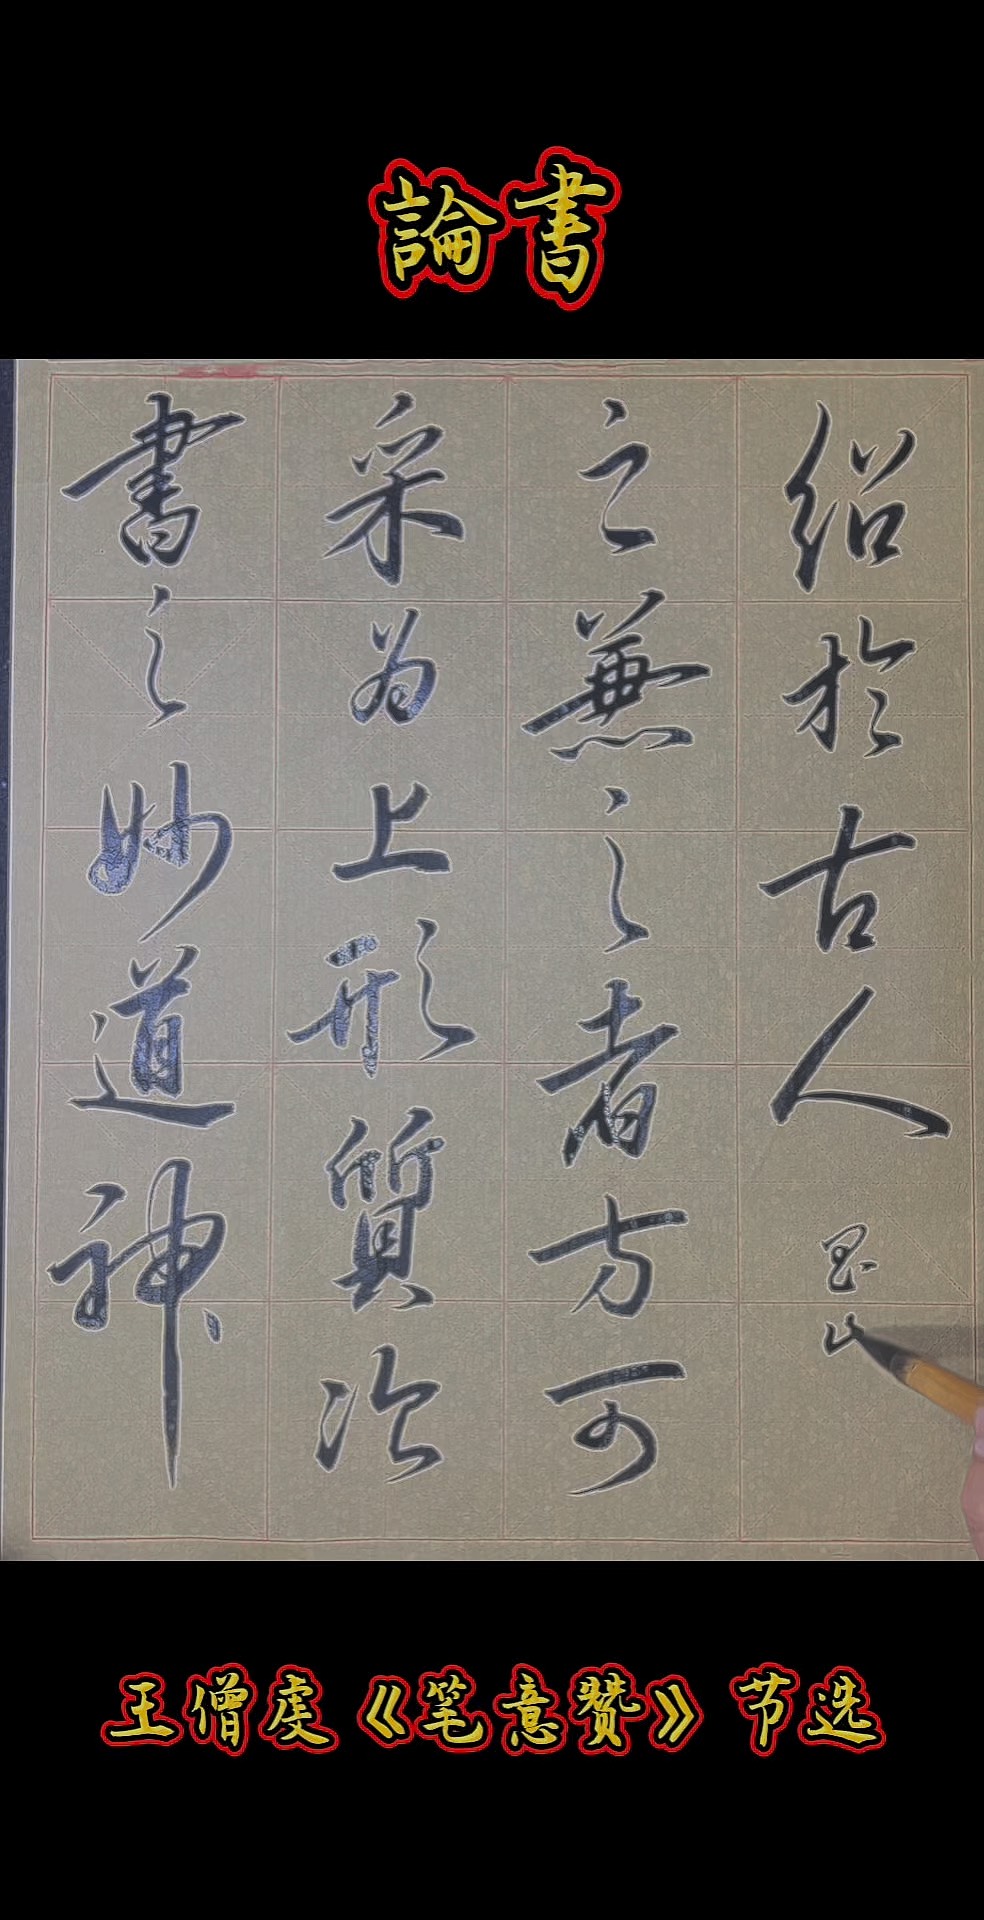 論書
書之妙道神
采为上形質次
之兼之者方可
绍於古人
王僧虔《笔意赞》节选